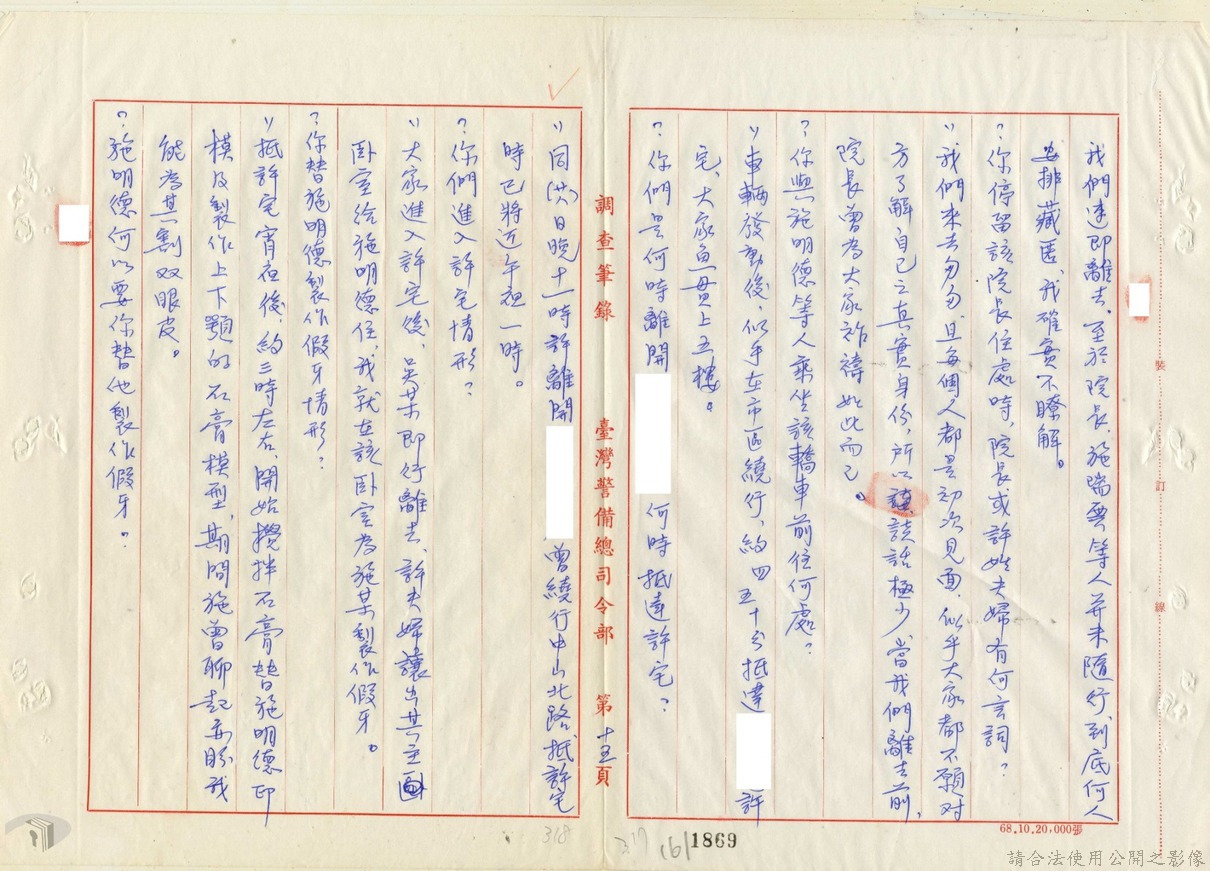 我們逮即離去。至於院長、施瑞雲等人並未隨行,到底何人
安排藏匿,我確實不瞭解。
?你停留該院長住處時,院長或許姓夫婦有何言詞?
〃我們來去匆匆,且每個人都是初次見面,似乎大家都不願对
方了解自己之真實身份,所以談話極少,當我們離去前,
院長曾為大家祚禱如此而已。
?你與施明德等人乘坐該轎車前往何處?
〃車輛發動後,似乎在市區繞行,約四五十分抵達 許
宅,大家魚貫上五樓。
?你們是何時離開 何時抵達許宅?
調查筆錄 臺灣警備總司令部 第十五頁
〃同(共)日晚十一時許離開 曾繞行中山北路,抵許宅
時已將近午夜一時。
?你們進入許宅情形?
〃大家進入許宅後,吳某即行離去,許夫婦讓出其主
臥室給施明德住,我就在該臥室為施某製作假牙。
?你替施明德製作假牙情形?
〃抵許宅宵夜後,約三時左右,開始攪拌石膏替施明德印
模及製作上下顎的石膏模型,期間施曾聊起盼我
能為其割双眼皮。
?施明德何以要你替他製作假牙?
裝
訂
線
68.10.20,000張
318
317
161
1869
請合法使用公開之影像